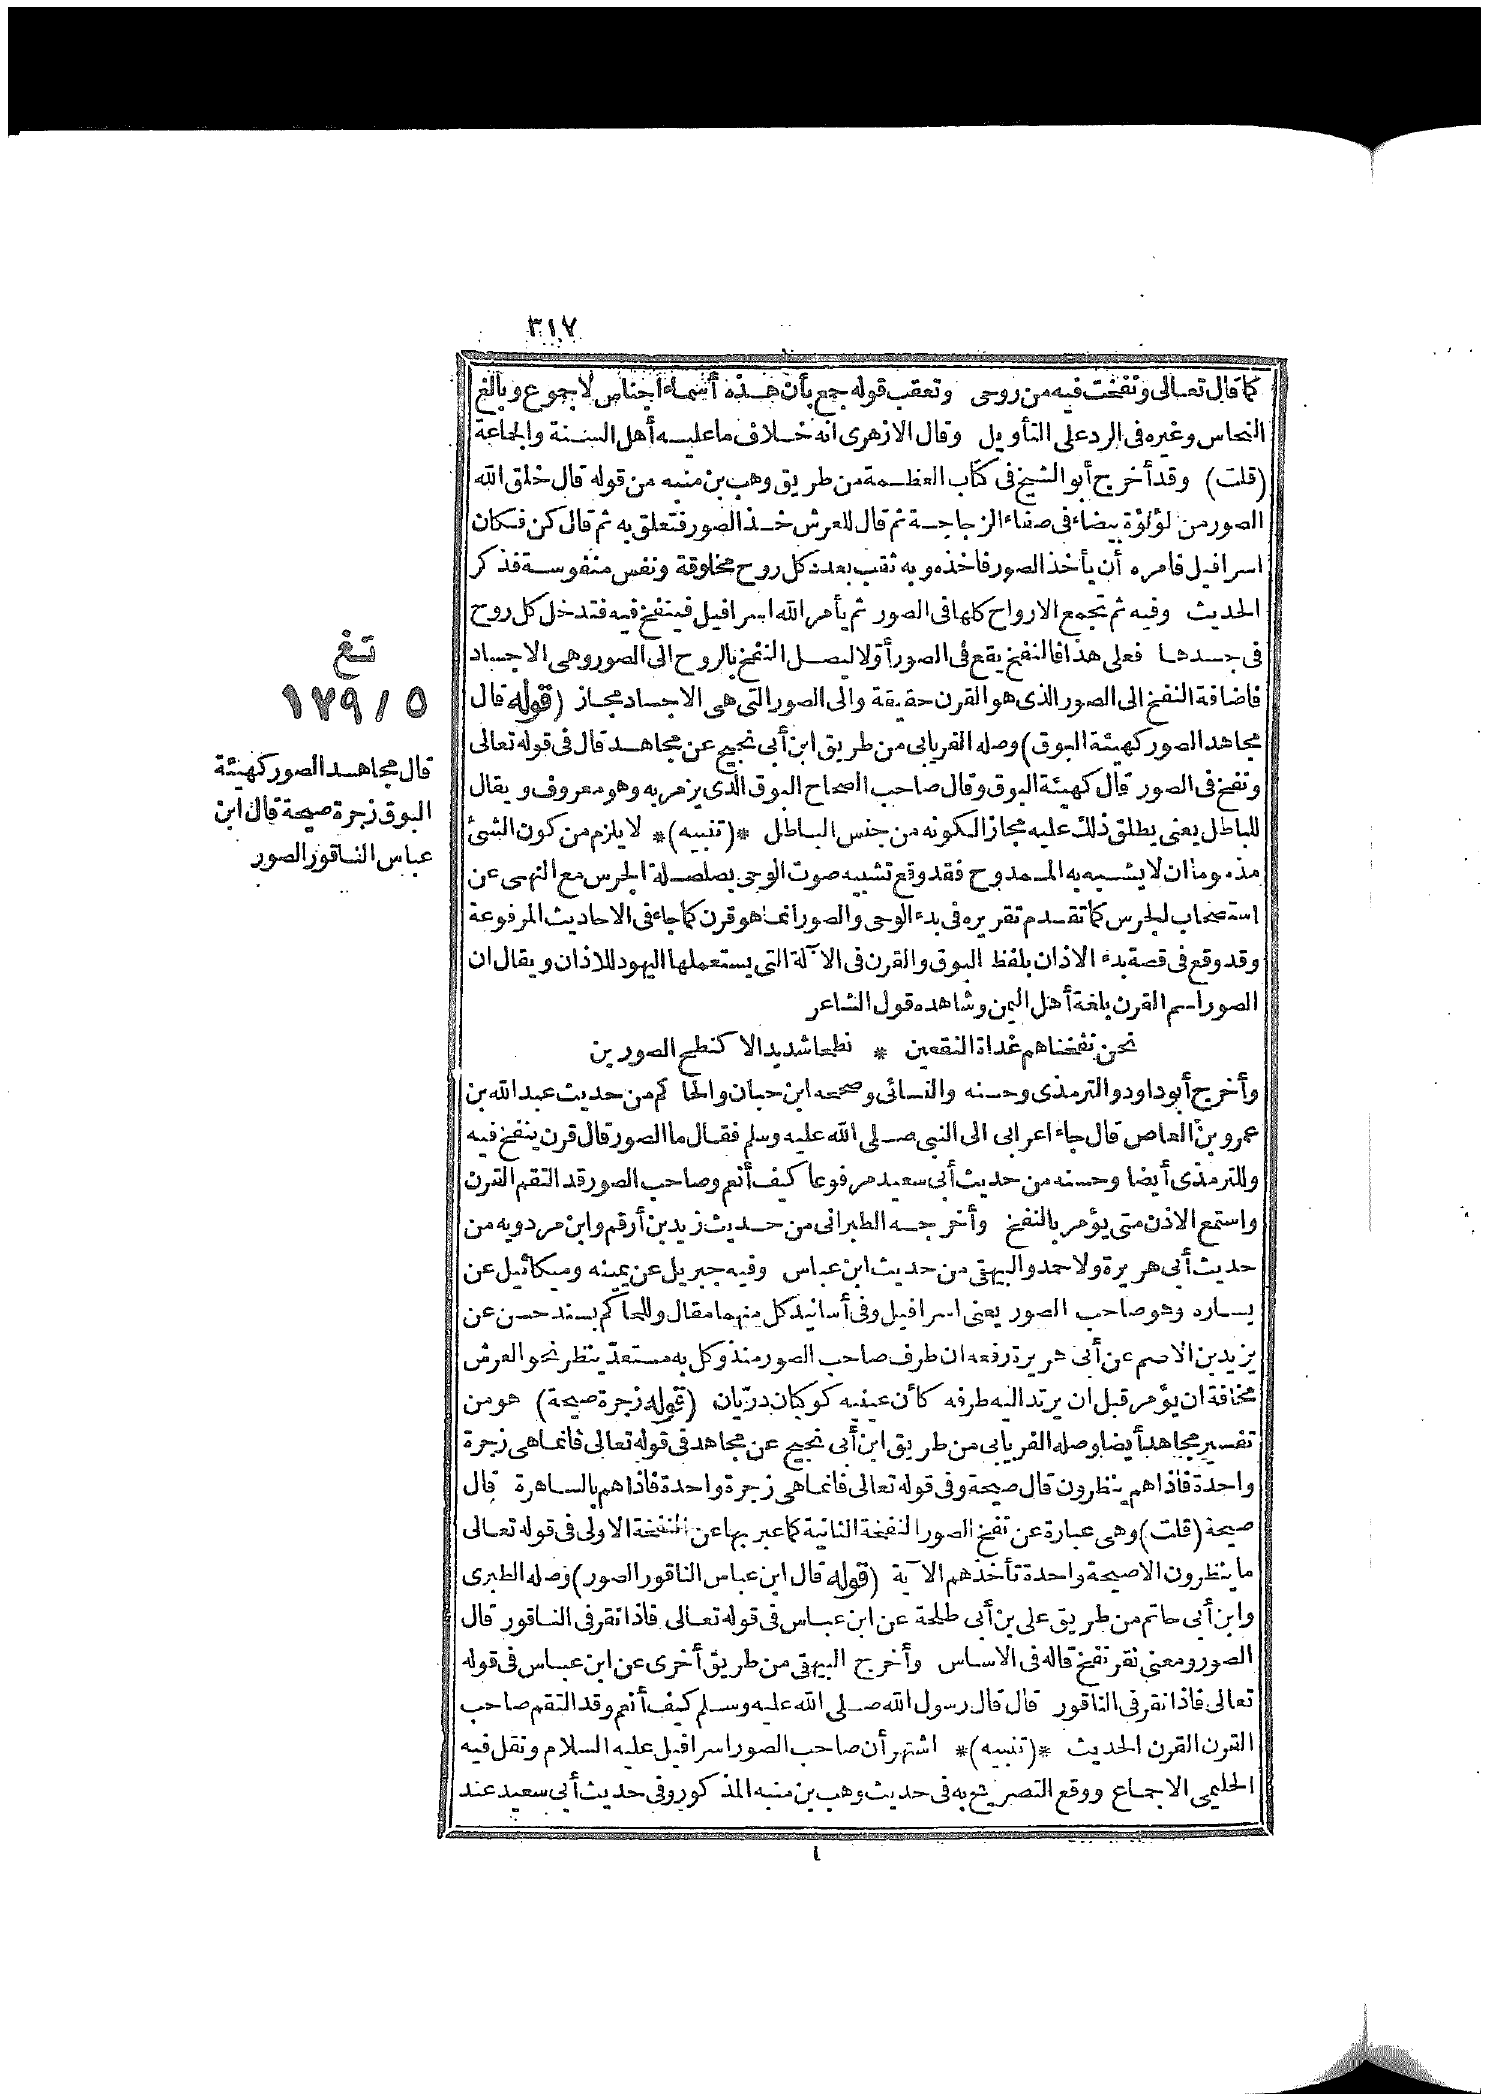 ٣١٧
كما قال تعالى ونفخت فيه من روحى وتعقب قوله جمع بأن هذه أسماء أجناس لا جموع وبالغ
النحاس وغيره فى الرد على التأويل وقال الازهرى انه خلاف ما عليه أهل السنة والجماعة
(قلت) وقد أخرج أبو الشيخ فى كتاب العظمة من طريق وهب بن منبه من قوله قال خلق الله
الصور من لؤلؤة بيضاء فى صفاء الزجاجة ثم قال للعرش خذ الصور فتعلق به ثم قال كن فكان
اسرافيل فامره أن يأخذ الصور فاخذه وبه ثقب بعدد كل روح مخلوقة ونفس منفوسة فذكر
الحديث وفيه ثم تجمع الارواح كلها فى الصور ثم يأمر الله اسرافيل فينفخ فيه فتدخل كل روح
فى جسدها فعلى هذا فالنفخ يقع فى الصور أولا ليصل النفخ بالروح الى الصور وهى الاجساد
فاضافة النفخ الى الصور الذى هو القرن حقيقة والى الصور التى هى الاجساد مجاز (قوله قال
مجاهد الصور كهيئة البوق) وصله الفريابى من طريق ابن أبى نجيح عن مجاهد قال فى قوله تعالى
ونفخ فى الصور قال كهيئة البوق وقال صاحب الصحاح البوق الذى يزمر به وهو معروف ويقال
للباطل يعنى يطلق ذلك عليه مجازا لكونه من جنس الباطل *(تنبيه)* لا يلزم من كون الشئ
مذموما ان لا يشبه به الممدوح فقد وقع تشبيه صوت الوحى بصلصلة الجرس مع النهى عن
استصحاب الجرس كما تقدم تقريره فى بدء الوحى والصور انما هو قرن كما جاء فى الاحاديث المرفوعة
وقد وقع فى قصة بدء الاذان بلفظ البوق والقرن فى الآلة التى يستعملها اليهود للاذان ويقال ان
الصور اسم القرن بلغة أهل اليمن وشاهده قول الشاعر
نحن نفخناهم غداة النقعين * نطحا شديدا لا كنطح الصورين
وأخرج أبو داود والترمذى وحسنه والنسائى وصححه ابن حبان والحاكم من حديث عبد الله بن
عمرو بن العاص قال جاء اعرابى الى النبى صلى الله عليه وسلم فقال ما الصور قال قرن ينفخ فيه
وللترمذى أيضا وحسنه من حديث أبى سعيد مرفوعا كيف أنعم وصاحب الصور قد التقم القرن
واستمع الاذن متى يؤمر بالنفخ وأخرجه الطبرانى من حديث زيد بن أرقم وابن مردويه من
حديث أبى هريرة ولاحمد والبيهقى من حديث ابن عباس وفيه جبريل عن يمينه وميكائيل عن
يساره وهو صاحب الصور يعنى اسرافيل وفى أسانيد كل منهما مقال وللحاكم بسند حسن عن
يزيد بن الاصم عن أبى هريرة رفعه ان طرف صاحب الصور منذ وكل به مستعد ينظر نحو العرش
مخافة ان يؤمر قبل ان يرتد اليه طرفه كأن عينيه كوكبان دريّان (قوله زجرة صيحة) هو من
تفسير مجاهد أيضا وصله الفريابى من طريق ابن أبى نجيح عن مجاهد فى قوله تعالى فانما هى زجرة
واحدة فاذا هم ينظرون قال صيحة وفى قوله تعالى فانما هى زجرة واحدة فاذا هم بالساهرة قال
صيحة (قلت) وهى عبارة عن نفخ الصور النفخة الثانية كما عبر بها عن النفخة الاولى فى قوله تعالى
ما ينظرون الا صيحة واحدة تأخذهم الآية (قوله قال ابن عباس الناقور الصور) وصله الطبرى
وابن أبى حاتم من طريق على بن أبى طلحة عن ابن عباس فى قوله تعالى فاذا نقر فى الناقور قال
الصور ومعنى نقر نفخ قاله فى الاساس وأخرج البيهقى من طريق أخرى عن ابن عباس فى قوله
تعالى فاذا نقر فى الناقور قال قال رسول الله صلى الله عليه وسلم كيف أنعم وقد التقم صاحب
القرن القرن الحديث *(تنبيه)* اشتهر أن صاحب الصور اسرافيل عليه السلام ونقل فيه
الحليمى الاجماع ووقع التصريح به فى حديث وهب بن منبه المذكور وفى حديث أبى سعيد عند
تغ
١٧٩/٥
قال مجاهد الصور كهيئة
البوق زجرة صيحة قال ابن
عباس الناقور الصور